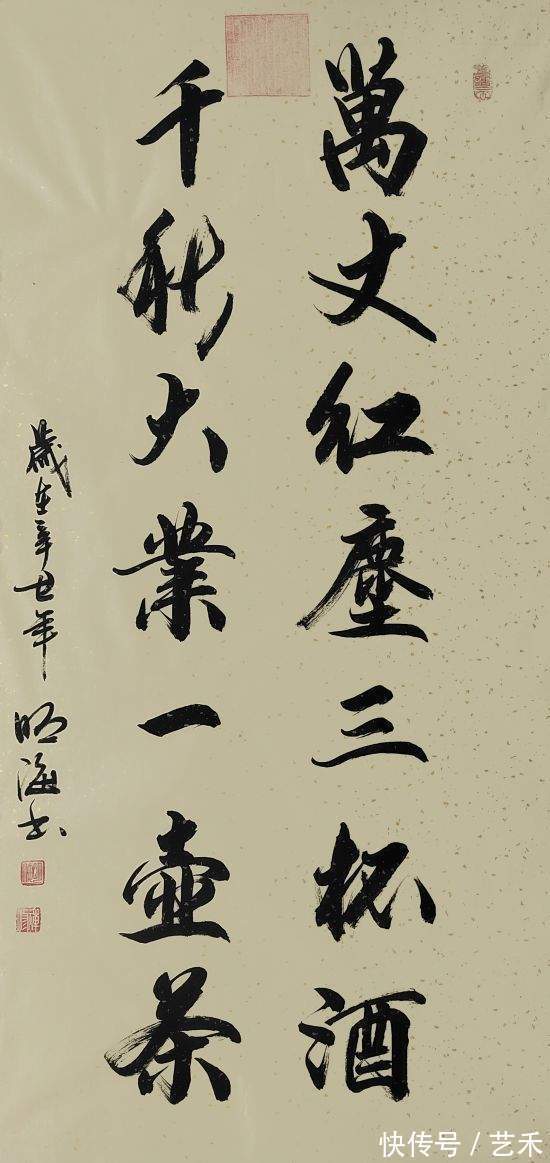 萬丈紅塵三杯酒
千秋大業一壺茶
歲在辛丑年
明海书
快传号 / 艺禾